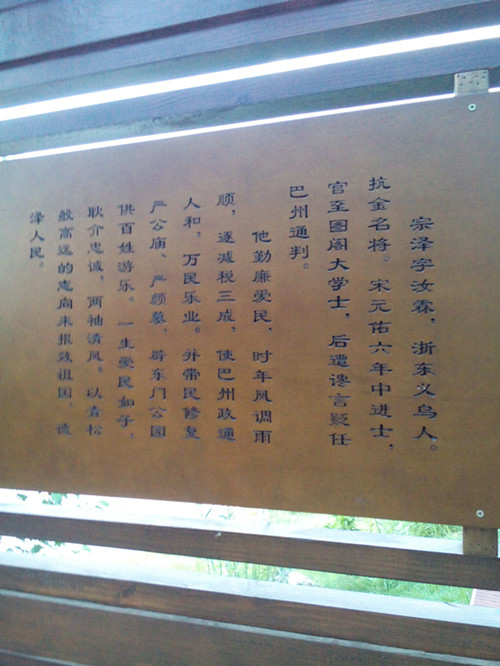 宗泽字汝霖，浙东义乌人。
抗金名将。宋元佑六年中进士，
官至图阁大学士，后遭谗言贬任
巴州通判。
他勤廉爱民，时年风调雨
顺，逐减税三成，使巴州政通
人和，万民乐业。并带民修复
严公庙、严颜墓，辟东门公园
供百姓游乐。一生爱民如子，
耿介忠诚，两袖清风。以青松
般高远的志向来报效祖国，德
泽人民。